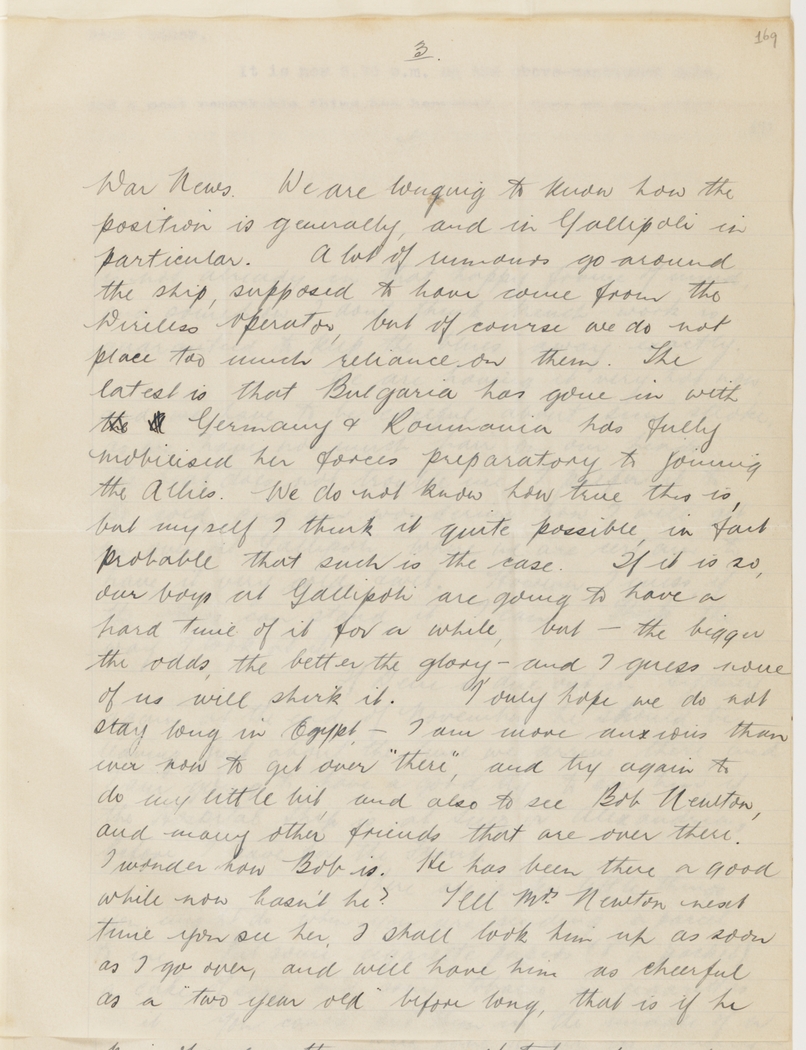 3.
169
War News. We are longing to know how the
position is generally, and in Gallipoli in
particular. A lot of rumours go around
the ship, supposed to have come from the
Wireless Operator, but of course we do not
place too much reliance on them. The
latest is that Bulgaria has gone in with
the Germany & Roumania has fully
mobilised her forces preparatory to joining
the Allies. We do not know how true this is,
but myself I think it quite possible, in fact
probable that such is the case. If it is so,
our boys at Gallipoli are going to have a
hard time of it for a while, but – the bigger
the odds, the better the glory, – and I guess none
of us will shirk it. I only hope we do not
stay long in Egypt, – I am more anxious than
ever now to get over "there", and try again to
do my little bit, and also to see Bob Newton,
and many other friends that are over there.
I wonder how Bob is. He has been there a good
while now hasn't he? Tell Mrs Newton next
time you see her, I shall look him up as soon
as I go over, and will have him as cheerful
as a "two year old" before long, that is if he